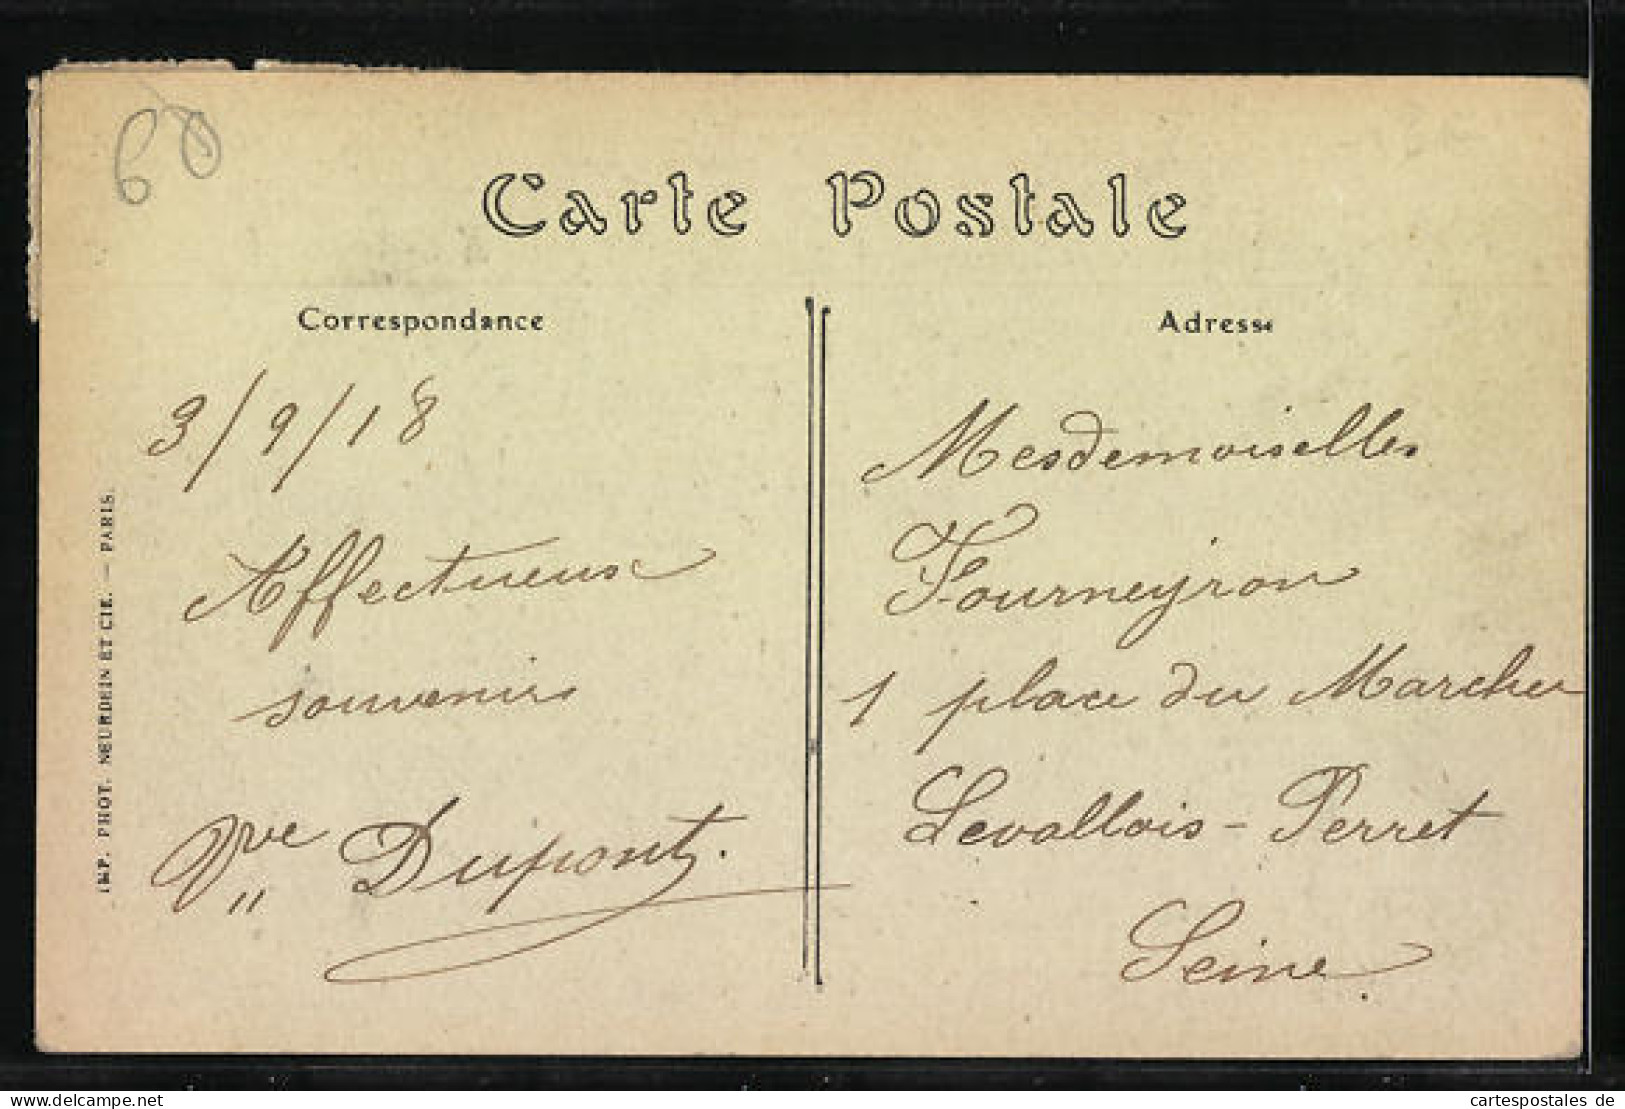 60
Carte Postale
Correspondance
3/9/18
Affectueux
souvenirs
Vve Dupont.
IMP. PHOT. NEURDEIN ET CIE. — PARIS.
Adresse
Mesdemoiselles
Fourneyron
1 place du Marcher
Levallois-Perret
Seine
www.delcampe.net
cartespostales de